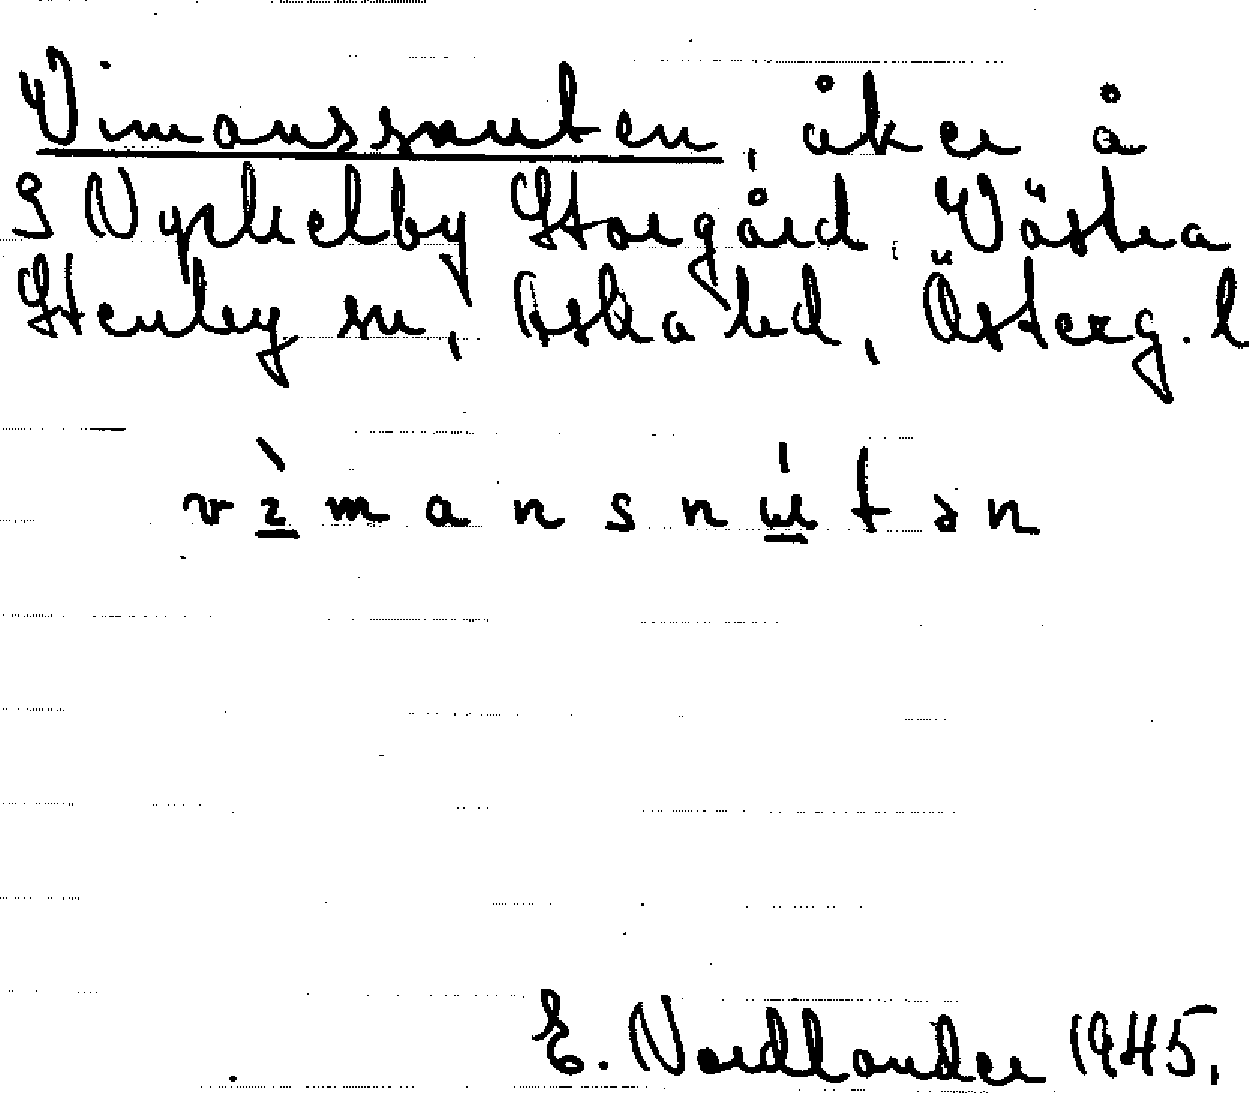 Vimanssnuten, åker å
S Nyckelby Storgård, Västra
Stenby sn, Aska hd, Österg. l
vìmansnútən
E. Nordlander 1945.